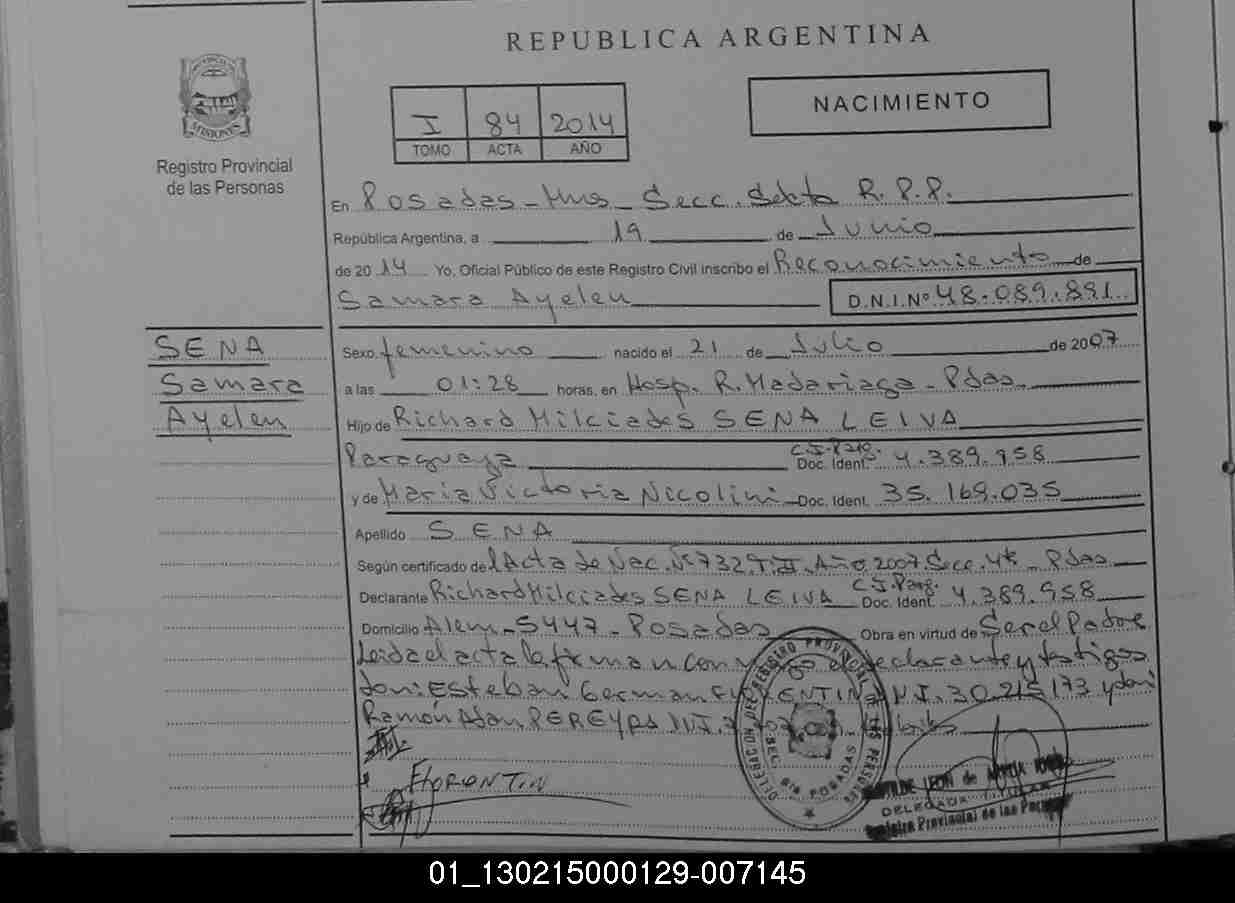 REPUBLICA ARGENTINA
PROVINCIA DE
MISIONES
Registro Provincial
de las Personas
I 84 2014
TOMO ACTA AÑO
NACIMIENTO
En Posadas - Mnes - Secc. Sexta R. P. P.
República Argentina, a 19 de Junio
de 2014 Yo, Oficial Público de este Registro Civil inscribo el Reconocimiento de
Samara Ayelen D.N.I. Nº 48.089.891
SENA
Samara
Ayelen
Sexo femenino nacido el 21 de Julio de 2007
a las 01:28 horas, en Hosp. R. Madariaga - Pdas.
Hijo de Richard Milciades SENA LEIVA
Paraguaya C.I. Parg. Doc. Ident. 4.389.958
y de Maria Victoria Nicolini Doc. Ident. 35.169.035
Apellido SENA
Según certificado de l Acta de Nac. Nº 732 T. II Año 2007 Secc. 4ta - Pdas
Declarante Richard Milciades SENA LEIVA C.I. Parg. Doc. Ident. 4.389.958
Domicilio Alem - 5447 - Posadas Obra en virtud de Ser el Padre
Leida el acta la firman conmigo el declarante y testigos
don: Esteban German M.I. 30.215.173 y don
Ramón Adan PEREYRA M.I.
FlORENTIN
DELEGACION DEL REGISTRO PROVINCIAL DE LAS PERSONAS
POSADAS
LEON de
DELEGADA TITULAR
Registro Provincial de las Personas
01_130215000129-007145